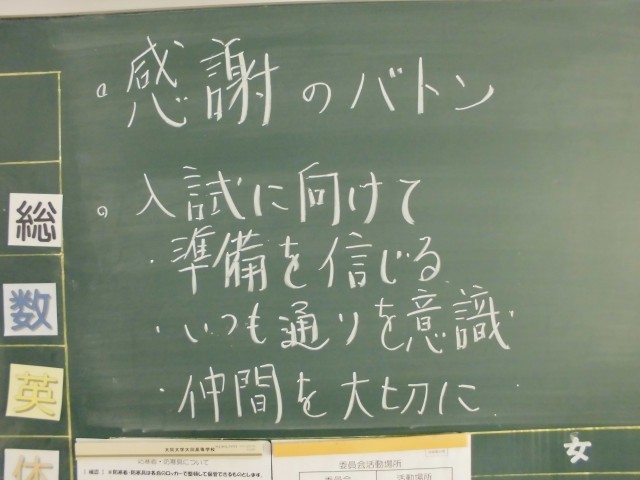 。感謝のバトン
。入試に向けて
・準備を信じる
・いつも通りを意識
・仲間を大切に
総
数
英
体
女
委員会活動場所
委員会
活動場所